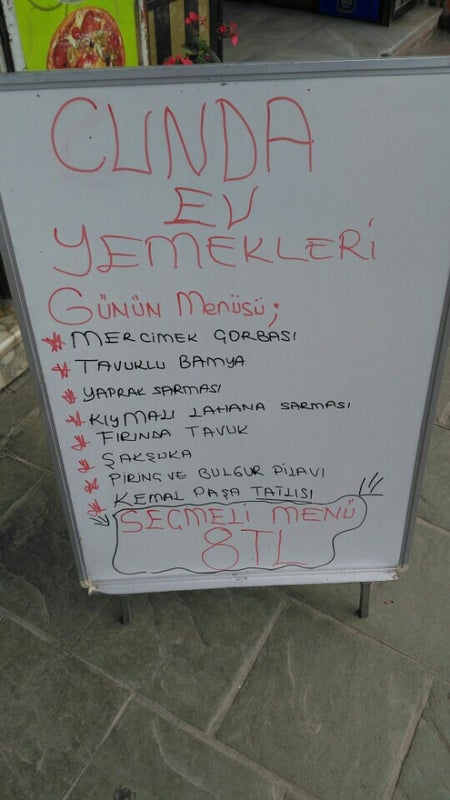 CUNDA
EV
YEMEKLERİ
GÜNÜN MENÜSÜ;
* MERCİMEK ÇORBASI
* TAVUKLU BAMYA
* YAPRAK SARMASI
* KIYMALI LAHANA SARMASI
* FIRINDA TAVUK
* ŞAKŞUKA
* PİRİNÇ VE BULGUR PİLAVI
* KEMAL PAŞA TATLISI
SEÇMELİ MENÜ
8TL